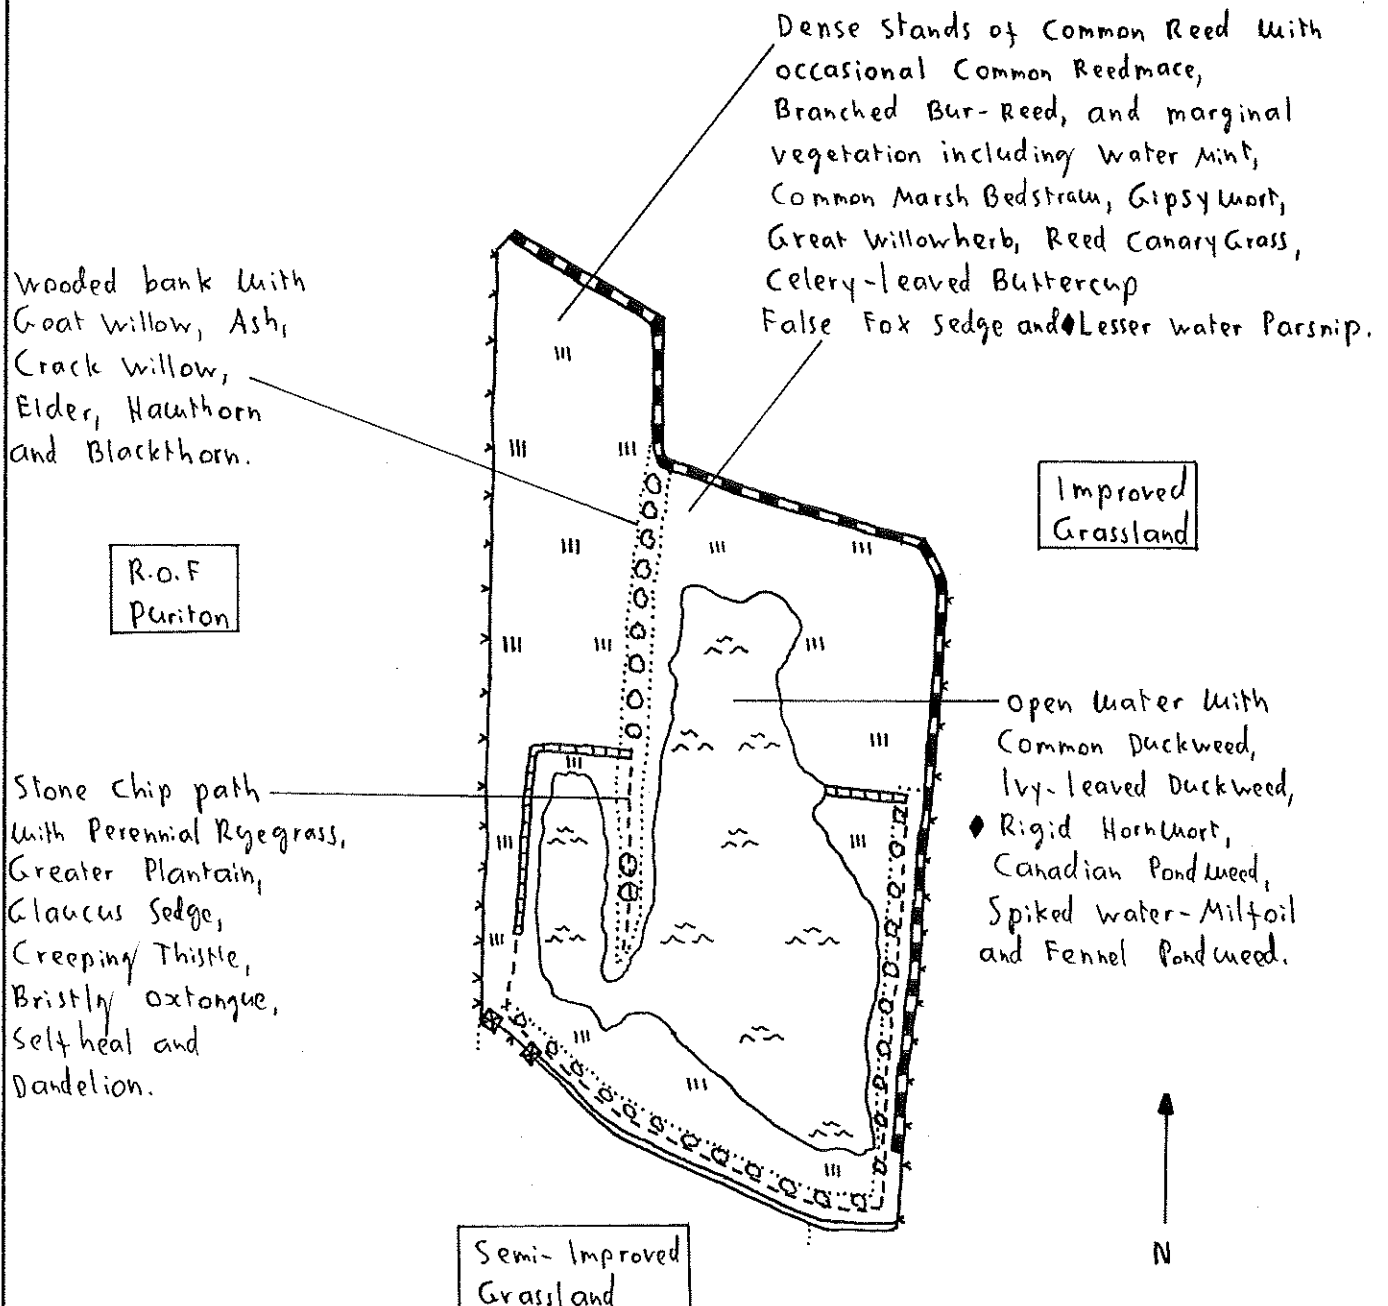 Dense Stands of Common Reed with
occasional Common Reedmace,
Branched Bur-Reed, and marginal
vegetation including Water Mint,
Common Marsh Bedstraw, Gipsywort,
Great Willowherb, Reed Canary Grass,
Celery-leaved Buttercup
False Fox Sedge and ♦Lesser Water Parsnip.
Wooded bank with
Goat Willow, Ash,
Crack Willow,
Elder, Hawthorn
and Blackthorn.
Improved
Grassland
R.O.F
Puriton
Open Water with
Common Duckweed,
Ivy-leaved Duckweed,
♦ Rigid Hornwort,
Canadian Pondweed,
Spiked Water-Milfoil
and Fennel Pondweed.
Stone Chip path
with Perennial Ryegrass,
Greater Plantain,
Glaucus Sedge,
Creeping Thistle,
Bristly Oxtongue,
Selfheal and
Dandelion.
N
Semi-Improved
Grassland